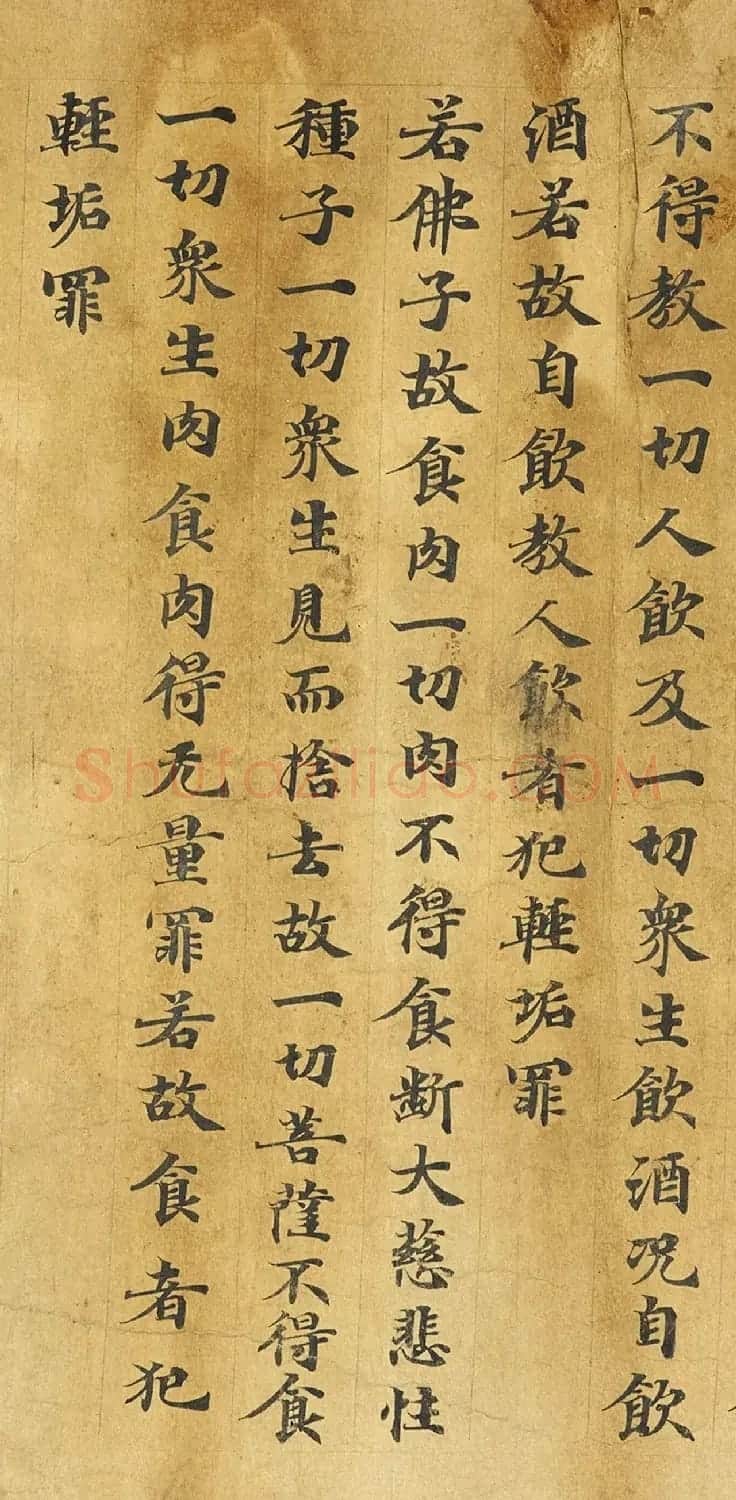 不得教一切人飲及一切衆生飲酒况自飲
酒若故自飲教人飲者犯輕垢罪
若佛子故食肉一切肉不得食断大慈悲性
種子一切衆生見而捨去故一切菩薩不得食
一切衆生肉食肉得无量罪若故食者犯
輕垢罪